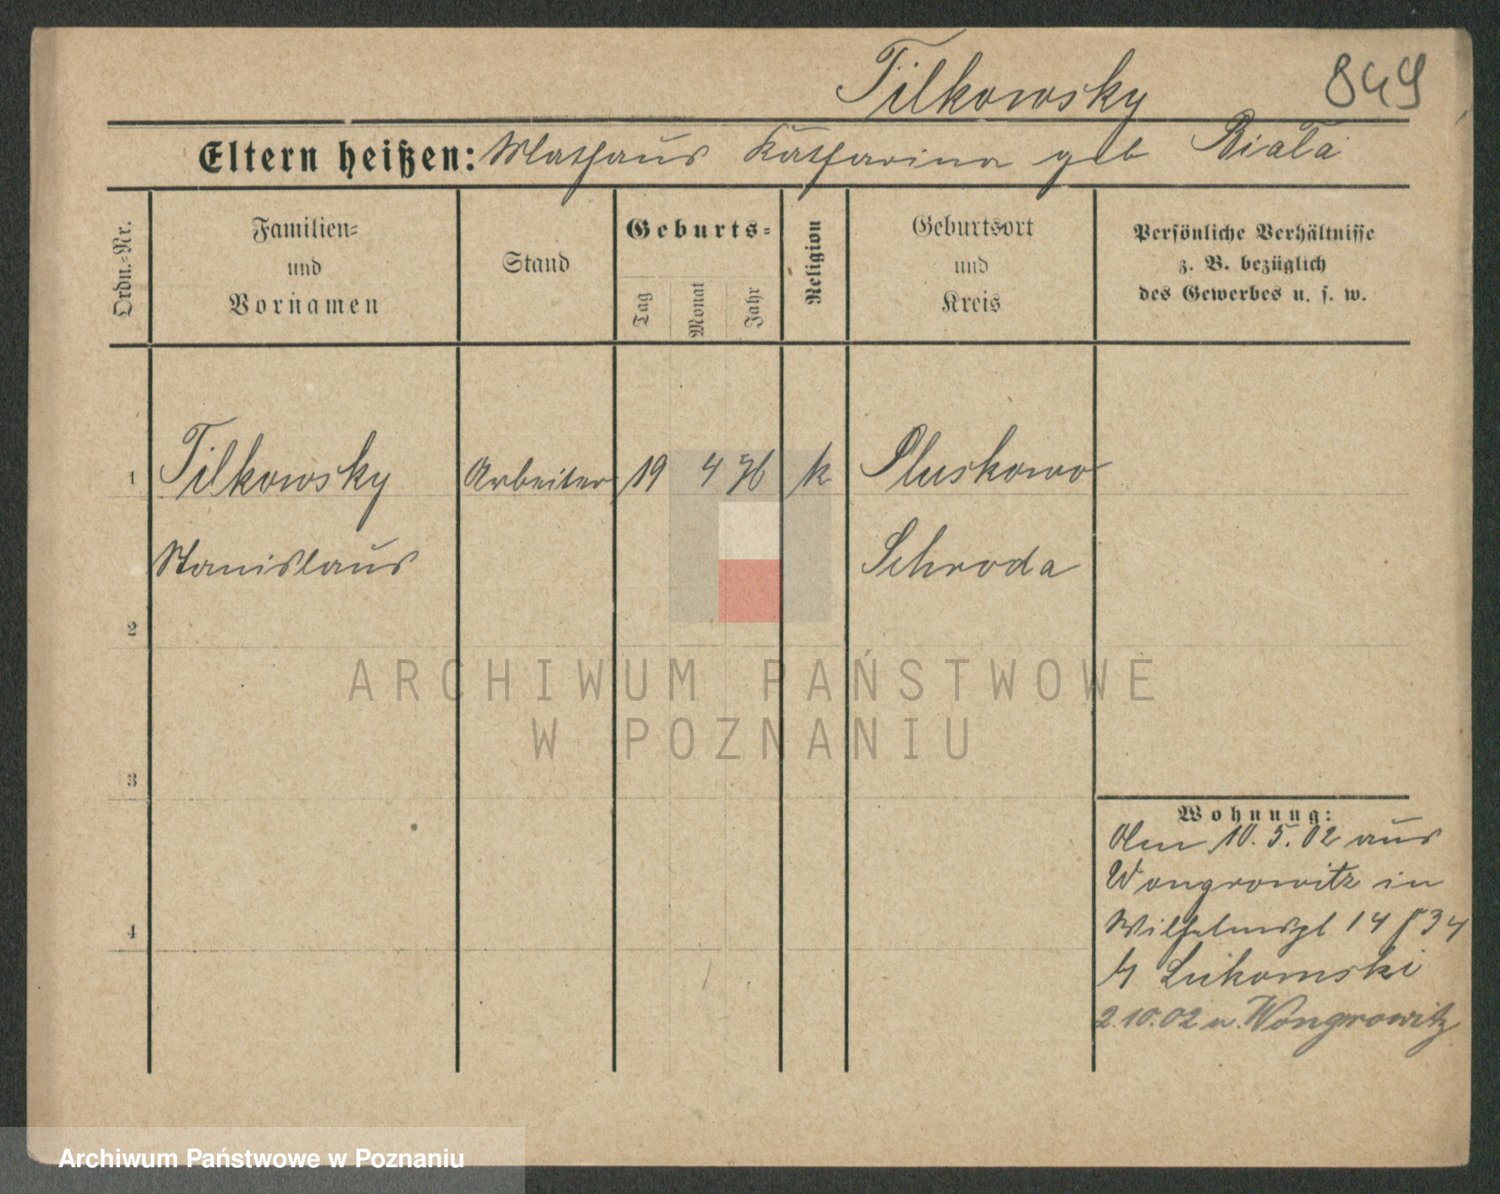 Tilkowsky 849
Eltern heißen: Mathaus Katharina geb Biala
Ordn.-Nr.
Familien-
und
Vornamen
Stand
Geburts-
Tag
Monat
Jahr
Religion
Geburtsort
und
Kreis
Persönliche Verhältnisse
z. B. bezüglich
des Gewerbes u. s. w.
1 Tilkowsky Arbeiter 19 4 76 k Pluskowo
Stanislaus Schroda
2
ARCHIWUM PAŃSTWOWE
W POZNANIU
3
Wohnung:
Am 10. 5. 02 aus
Wongrowitz in
4 Wilhelmspl 14
Lukomski
2.10.02 n. Wongrowitz
Archiwum Państwowe w Poznaniu